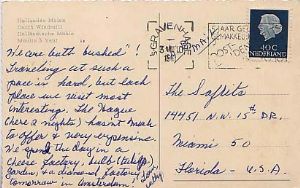 Hollandse Molen
Dutch Windmill
Holländische Mühle
Moulin à Vent
'S GRAVENHAGE
NEDERLAND
40 C
We are both bushed!
Traveling at such a
pace is hard, but each
place we visit most
interesting. The Hague
(here 2 nights) hasn't much
to offer & very expensive.
We spend the Day in a
cheese factory, bulb (tulip)
Garden, & a diamond factory
tomorrow in Amsterdam.
The Saflits
14451 N.W. 15th DR.
Miami 50
Florida - U.S.A